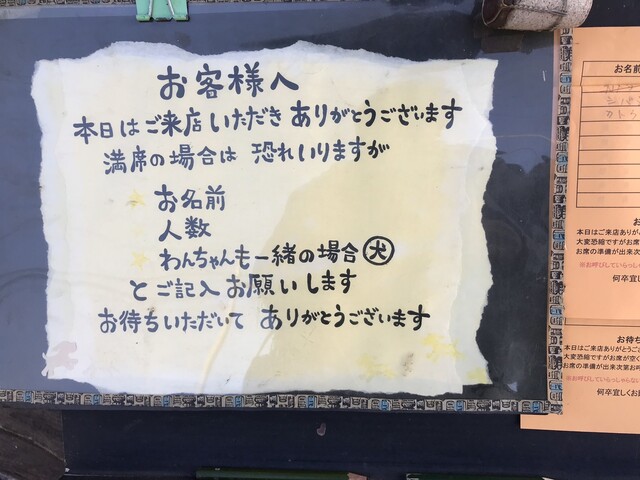 お客様へ
本日はご来店いただき ありがとうございます
満席の場合は 恐れいりますが
お名前
人数
わんちゃんも一緒の場合 犬
とご記入お願いします
お待ちいただいて ありがとうございます
お名前
カトウ
本日はご来店ありが
大変恐縮ですがお席
お席の準備が出来次
※お呼びしていらっし
何卒宜し
お待ち
本日はご来店ありがとうご
大変恐縮ですがお席が空く
お席の準備が出来次第お呼
※お呼びしていらっしゃらな
何卒宜しくお